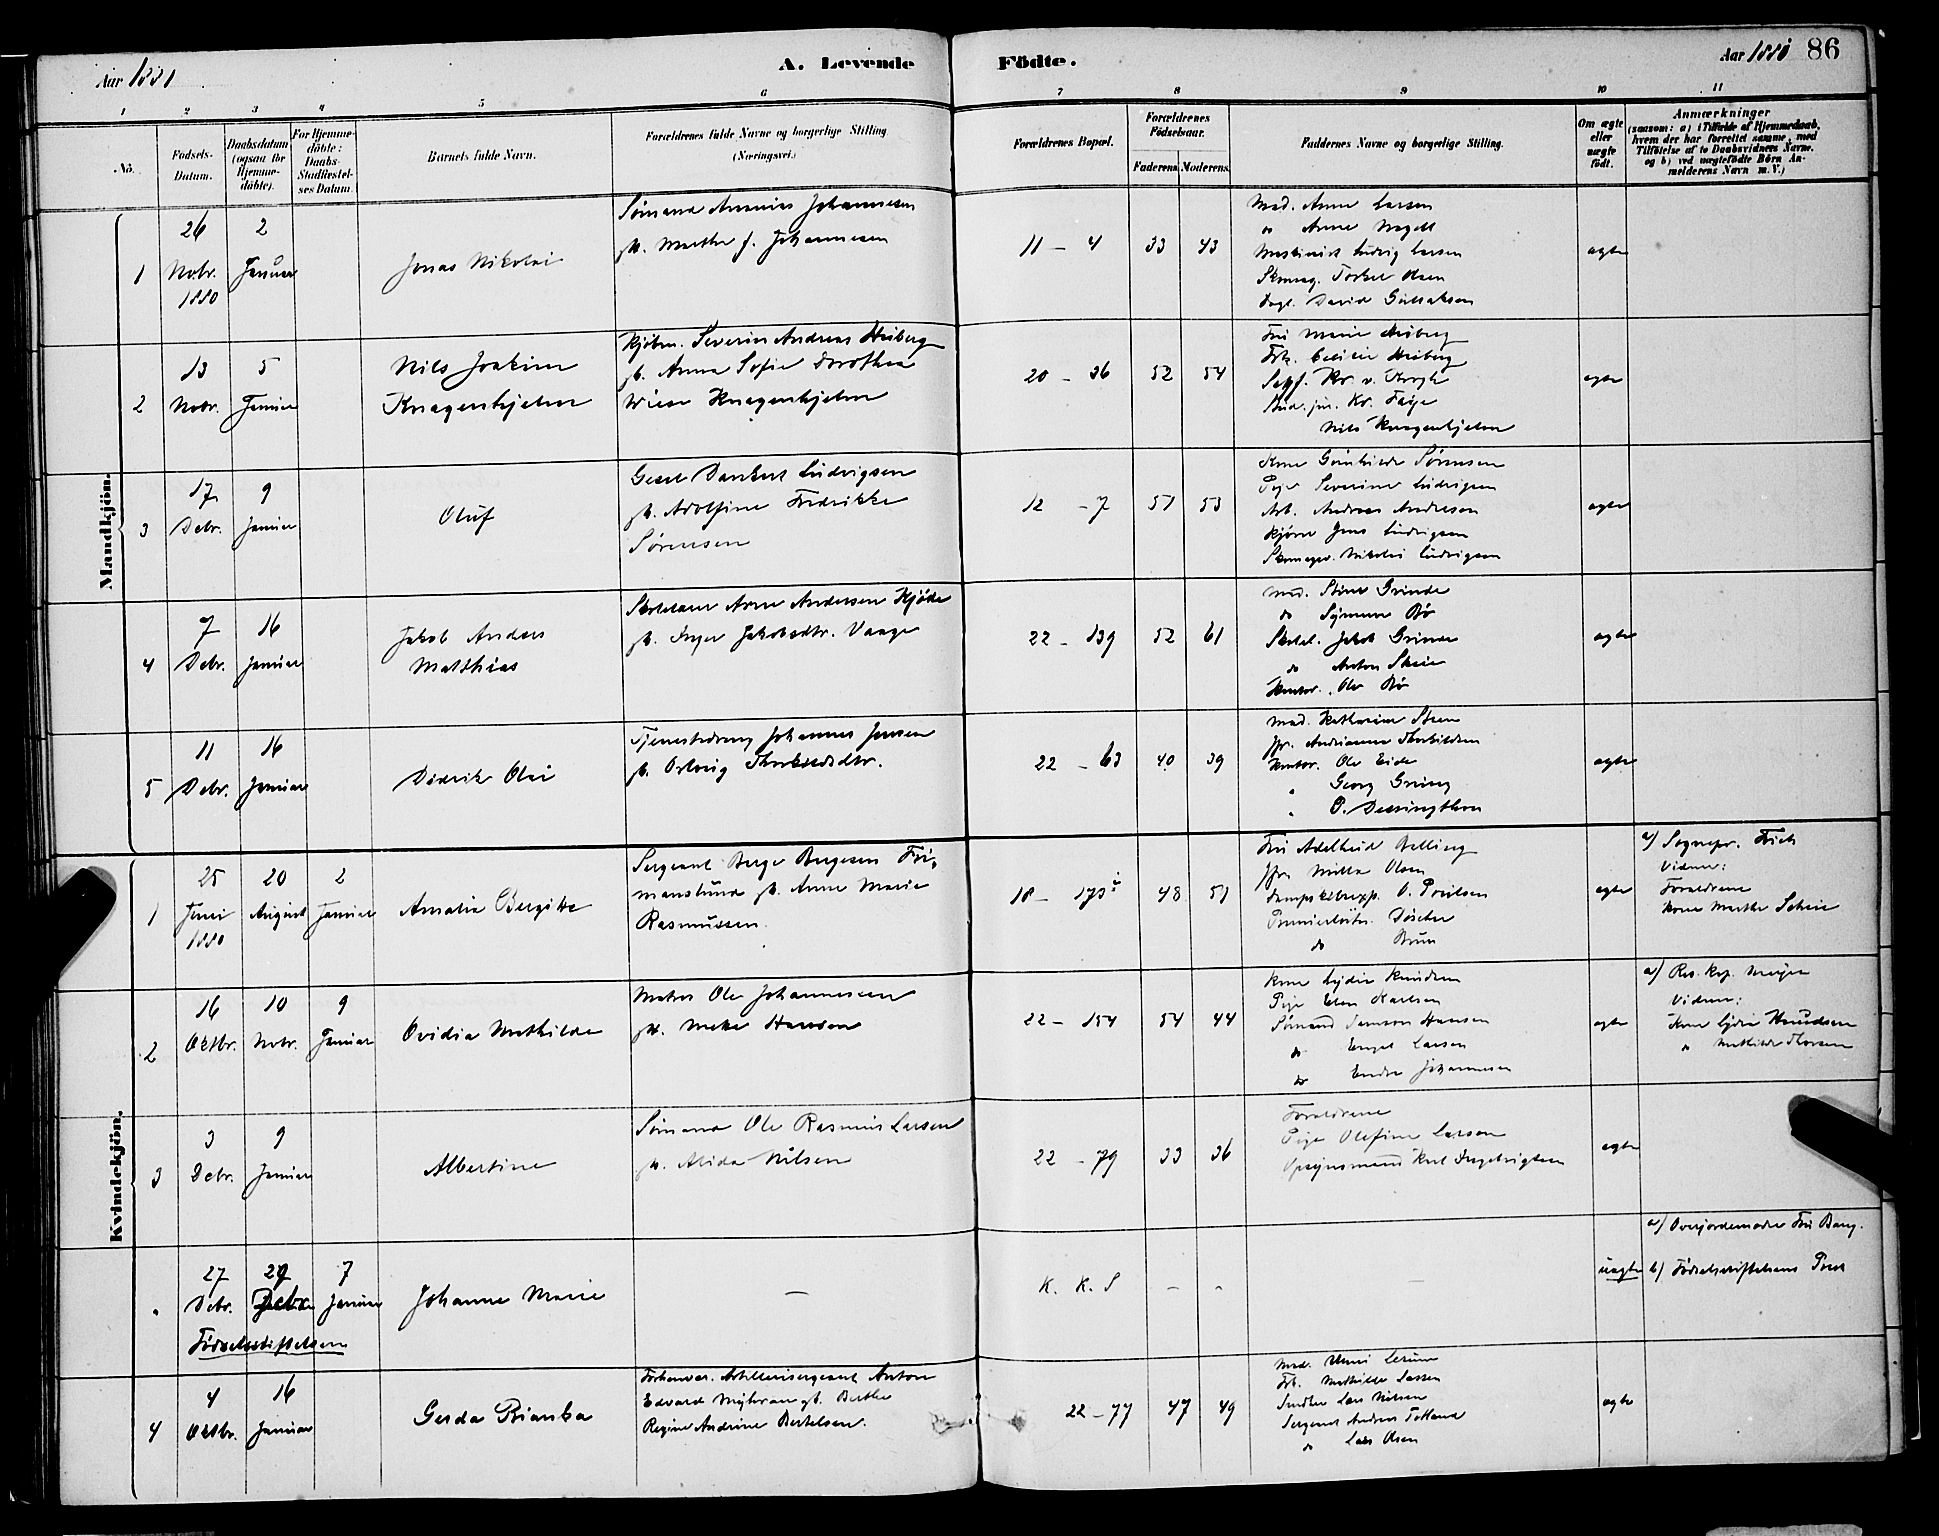 Aar 1881
A. Levende Födte.
Aar 1881 86
1 2 3 4 5 6 7 8 9 10 11
No.
Födsels-Datum.
Daabsdatum (ogsaa for Hjemmedöbte).
For Hjemmedöbte: Daabs-Stadfæstelses Datum.
Barnets fulde Navn.
Forældrenes fulde Navne og borgerlige Stilling (Næringsvei.)
Forældrenes Bopæl.
Forældrenes Födselsaar.
Faderens Moderens
Faddernes Navne og borgerlige Stilling.
Om ægte eller uægte födt.
Anmærkninger
(saasom: a) i Tilfælde af Hjemmedaab, hvem der har forrettet samme, med Tilföielse af to Daabsvidners Navne. og b) ved uægtefödte Börn Anmelderens Navn m. V.)
Mandkjön.
1
26 Novbr. 1880
2 Januar
Jonas Nikolai
Sömand Ananias Johannesen
gb. Marthe f. Johannesen
11 - 4
33 43
Mad. Anne Larsen
do Anne Nagell
Maskinist Ludvig Larsen
Skomag. Torkel Olsen
Dagl. David Gullaksen
ægte
2
13 Novbr.
5 Januar
Nils Joakim
Knagenhjelm
Kjöbm. Severin Andreas Heiberg
gb. Anna Sofie Dorothea
Wiese Knagenhjelm
20 - 36
52 54
Fru Marie Heiberg
Frk. Cecilie Heiberg
Sagf. Kr. v. Krogh
Stud. jur. Kr. Faije
Nils Knagenhjelm
ægte
3
17 Debr.
9 Januar
Oluf
Gesel Dankert Ludvigsen
gb. Adolfine Fredrikke
Sörensen
12 - 7
51 53
Kone Gunhilde Sörensen
Pige Severine Ludvigsen
Arb. Andreas Andresen
Kjörer Jens Ludvigsen
Skomager. Nikolai Ludvigsen
ægte
4
7 Debr.
16 Januar
Jakob Anders
Matthias
Skolelærer Arne Andersen Kjöde
gb. Inger Jakobsdtr. Vaage
22 - 139
52 61
Mad. Stine Grinde
do Synneve Bö
Skolel. Jakob Grinde
do Anton Skeie
Kontor. Ole Bö
ægte
5
11 Debr.
16 Januar
Didrik Olai
Tjenestedreng Johannes Jensen
gb. Orlaug Thorkildsdtr.
22 - 63
40 39
Mad. Katharine Steen
Jfr. Andrianna Thorkildsen
Kontor. Ole Eide
" Georg Grieg
" O. Dessingthon
ægte
Kvindekjön.
1
25 Juni 1880
20 August
2 Januar
Amalia Bergitte
Sergeant Berge Bergesen Fri-
manslund gb. Anne Marie
Rasmussen.
18 - 173
48 51
Fru Adelheid Belling
Jfr. Milla Olsen
Dampskibsexp. O. Poulsen
Premierlöitn. Döscher
do Brun
ægte
a) Sognepr. Frich
Vidner:
Forældrene
Kone Marthe Scheie
2
16 Oktbr.
10 Novbr.
9 Januar
Ovidia Mathilde
Matros Ole Johannesen
gb. Meke Hansen
22 - 154
54 44
Kone Lydia Knudsen
Pige Elen Karlsen
Sömand Samson Hansen
do Engel Larsen
do Endre Johannesen
ægte
a) Res. Kap. Meyer
Vidner:
Kone Lydia Knudsen
" Mathilde Thorsen
3
3 Debr.
9 Januar
Albertine
Sömand Ole Rasmus Larsen
gb. Alida Nilsen
22 - 79
33 36
Forældrene
Pige Olefine Larsen
Opsynsmand Karl Ingebrigtsen
ægte
"
27 Debr.
29 Debr
7 Januar
Födselsstiftelsen
Johanne Marie
-
K. K. S
- -
-
uægte
a) Overjordemoder Fru Bang.
b) Födselsstiftelsens Prot
4
4 Oktbr.
16 Januar
Gerda Bianka
Forhenvær. Artillerisergeant Anton
Edvard Myhran gb. Berthe
Regine Andrine Bertelsen.
22 - 77
47 49
Mad. Lerum
Frk. Mathilde Lassen
Snedker Lars Nilsen
Sergeant Anders Totland
do Lars Olsen
ægte